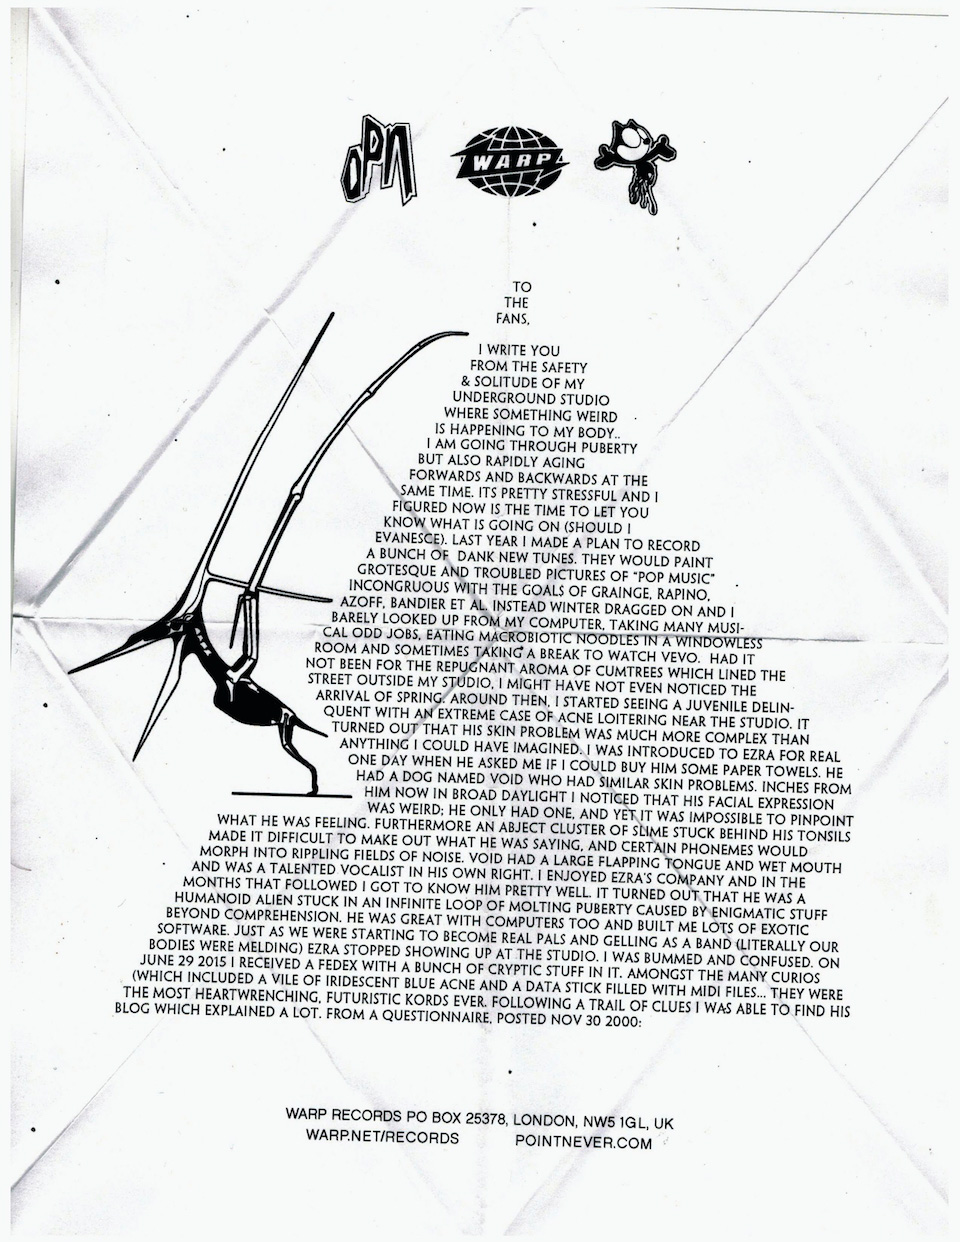 OPN WARP
TO
THE
FANS,
I WRITE YOU
FROM THE SAFETY
& SOLITUDE OF MY
UNDERGROUND STUDIO
WHERE SOMETHING WEIRD
IS HAPPENING TO MY BODY..
I AM GOING THROUGH PUBERTY
BUT ALSO RAPIDLY AGING
FORWARDS AND BACKWARDS AT THE
SAME TIME. ITS PRETTY STRESSFUL AND I
FIGURED NOW IS THE TIME TO LET YOU
KNOW WHAT IS GOING ON (SHOULD I
EVANESCE). LAST YEAR I MADE A PLAN TO RECORD
A BUNCH OF DANK NEW TUNES. THEY WOULD PAINT
GROTESQUE AND TROUBLED PICTURES OF "POP MUSIC"
INCONGRUOUS WITH THE GOALS OF GRAINGE, RAPINO,
AZOFF, BANDIER ET AL. INSTEAD WINTER DRAGGED ON AND I
BARELY LOOKED UP FROM MY COMPUTER, TAKING MANY MUSI-
CAL ODD JOBS, EATING MACROBIOTIC NOODLES IN A WINDOWLESS
ROOM AND SOMETIMES TAKING A BREAK TO WATCH VEVO. HAD IT
NOT BEEN FOR THE REPUGNANT AROMA OF CUMTREES WHICH LINED THE
STREET OUTSIDE MY STUDIO, I MIGHT HAVE NOT EVEN NOTICED THE
ARRIVAL OF SPRING. AROUND THEN, I STARTED SEEING A JUVENILE DELIN-
QUENT WITH AN EXTREME CASE OF ACNE LOITERING NEAR THE STUDIO. IT
TURNED OUT THAT HIS SKIN PROBLEM WAS MUCH MORE COMPLEX THAN
ANYTHING I COULD HAVE IMAGINED. I WAS INTRODUCED TO EZRA FOR REAL
ONE DAY WHEN HE ASKED ME IF I COULD BUY HIM SOME PAPER TOWELS. HE
HAD A DOG NAMED VOID WHO HAD SIMILAR SKIN PROBLEMS. INCHES FROM
HIM NOW IN BROAD DAYLIGHT I NOTICED THAT HIS FACIAL EXPRESSION
WAS WEIRD; HE ONLY HAD ONE, AND YET IT WAS IMPOSSIBLE TO PINPOINT
WHAT HE WAS FEELING. FURTHERMORE AN ABJECT CLUSTER OF SLIME STUCK BEHIND HIS TONSILS
MADE IT DIFFICULT TO MAKE OUT WHAT HE WAS SAYING, AND CERTAIN PHONEMES WOULD
MORPH INTO RIPPLING FIELDS OF NOISE. VOID HAD A LARGE FLAPPING TONGUE AND WET MOUTH
AND WAS A TALENTED VOCALIST IN HIS OWN RIGHT. I ENJOYED EZRA'S COMPANY AND IN THE
MONTHS THAT FOLLOWED I GOT TO KNOW HIM PRETTY WELL. IT TURNED OUT THAT HE WAS A
HUMANOID ALIEN STUCK IN AN INFINITE LOOP OF MOLTING PUBERTY CAUSED BY ENIGMATIC STUFF
BEYOND COMPREHENSION. HE WAS GREAT WITH COMPUTERS TOO AND BUILT ME LOTS OF EXOTIC
SOFTWARE. JUST AS WE WERE STARTING TO BECOME REAL PALS AND GELLING AS A BAND (LITERALLY OUR
BODIES WERE MELDING) EZRA STOPPED SHOWING UP AT THE STUDIO. I WAS BUMMED AND CONFUSED. ON
JUNE 29 2015 I RECEIVED A FEDEX WITH A BUNCH OF CRYPTIC STUFF IN IT. AMONGST THE MANY CURIOS
(WHICH INCLUDED A VILE OF IRIDESCENT BLUE ACNE AND A DATA STICK FILLED WITH MIDI FILES... THEY WERE
THE MOST HEARTWRENCHING, FUTURISTIC KORDS EVER. FOLLOWING A TRAIL OF CLUES I WAS ABLE TO FIND HIS
BLOG WHICH EXPLAINED A LOT. FROM A QUESTIONNAIRE, POSTED NOV 30 2000:
WARP RECORDS PO BOX 25378, LONDON, NW5 1GL, UK
WARP.NET/RECORDS POINTNEVER.COM